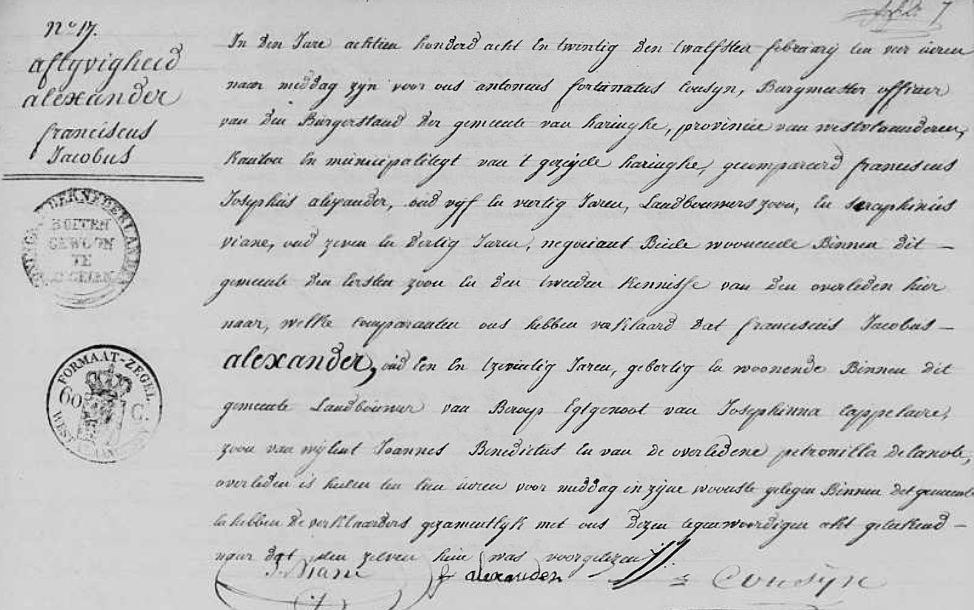 N.o 17.
aflyvigheid
alexander
franciscus
Jacobus
BUITEN
GEWOON
TE
ZEGELEN
FORMAAT-ZEGEL
60 C.
WEST-VLAANDEREN
7
In den Jare achtien honderd acht en twintig den twalfsten february ten vier uren
naar middag zyn voor ons antonius fortunatus Cousyn, Burgmeester officier
van den Burgerstand der gemeente van haringhe, provincie van westvlaanderen,
kanton en municipaliteyt van 't gezeijde haringhe, gecompareerd franciscus
Josephus alexander, oud vyf en veertig Jaren, Landbouwers zoon, en Seraphinus
viane, oud zeven en dertig Jaren, negociant Beide woonende Binnen dit –
gemeente den eersten zoon en den tweeden kennisse van den overleden hier
naar, welke comparanten ons hebben verklaard dat franciscus Jacobus –
alexander, oud een en tzeventig Jaren, geboortig en woonende Binnen dit
gemeente Landbouwer van Beroep Egtgenoot van Josephinna Cappelaire,
zoon van wylent Joannes Benedictus en van de overledene petronilla delanote,
overleden is heden ten tien uren voor middag in zyne woonste gelegen Binnen dit gemeente
en hebben de verklaarders gezamentlyk met ons dezen tegenwoordigen akt geteekend –
naar dat den zelven hun was voorgelezen
S. Viane f alexander Cousyn